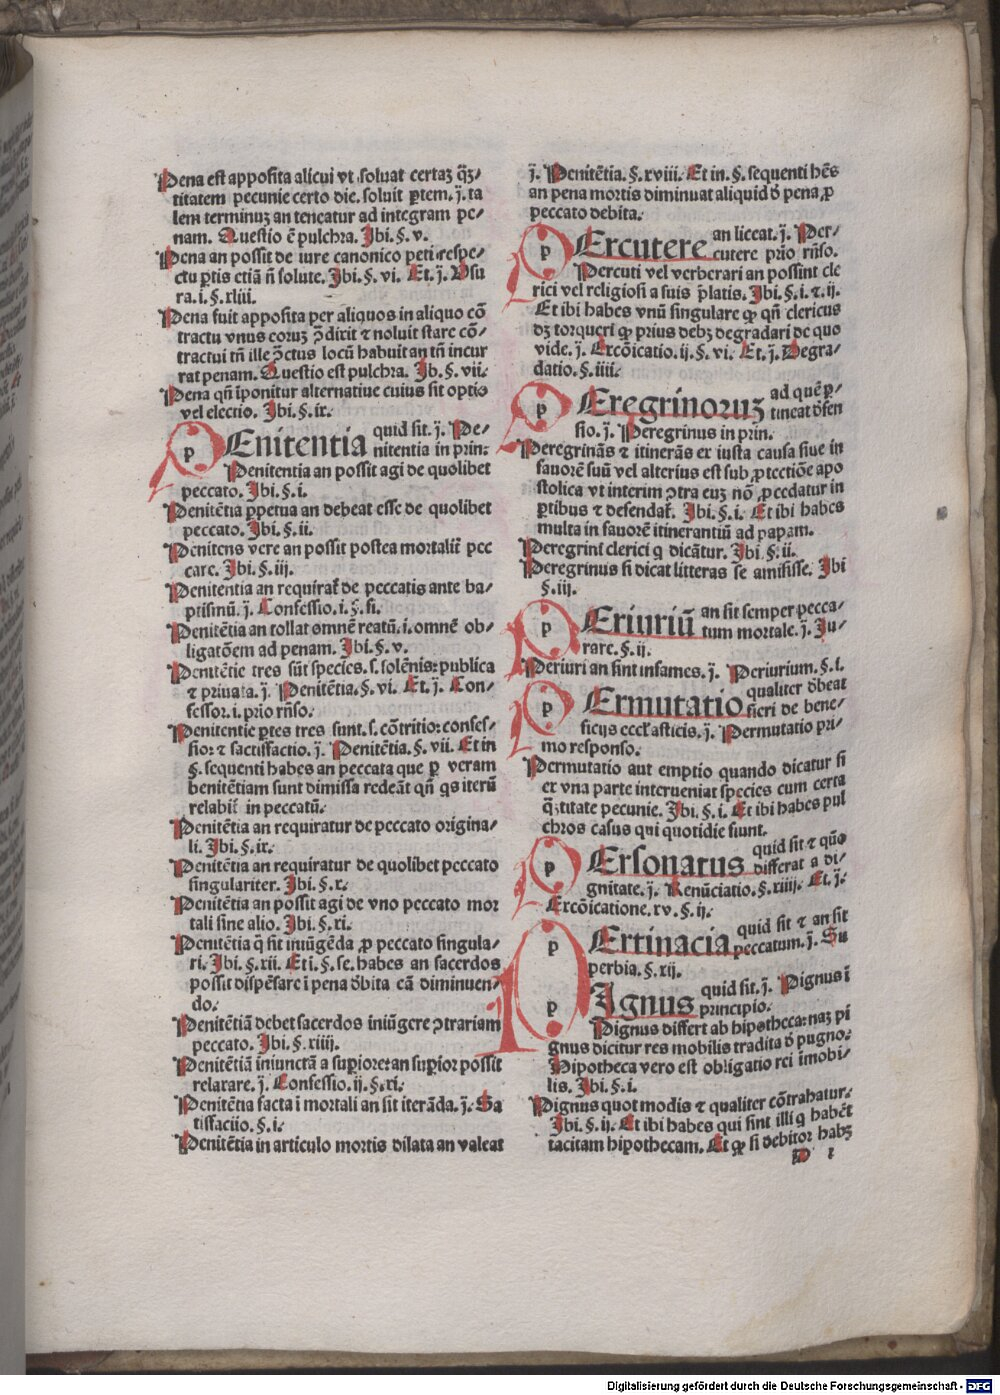 Pena est apposita alicui vt soluat certaꝫ qꝫ/
titatem pecunie certo die. soluit ꝑtem. j̄. ta
lem terminuꝫ an teneatur ad integram pe/
nam. Questio ē pulchra. Ibi. §. v.
Pena an possit de iure canonico peti respe/
ctu ꝑtis etiā nō solute. Ibi. §. vi. Et. j̄. Usu
ra. i. §. xliii.
Pena fuit apposita per aliquos in aliquo cō
tractu vnus eoruꝫ ꝯdixit ⁊ noluit stare cō/
tractui tn̄ ille ꝯctus locū habuit an tn̄ incur
rat penam. Questio est pulchra. Ib. §. vii.
Pena qn̄ īponitur alternatiue cuius sit optio
vel electio. Ibi. §. ix.
pEnitentia quid sit. j̄. Pe/
nitentia in prin:
Penitentia an possit agi de quolibet
peccato. Ibi. §. i.
Penitētia ꝑpetua an debeat esse de quolibet
peccato. Ibi. §. ii.
Penitens vere an possit postea mortalit̄ pec
care. Ibi. §. iij.
Penitentia an requirat̄ de peccatis ante ba/
ptismū. j̄. Confessio. i. §. fi.
Penitētia an tollat omnē reatū. i. omnē ob/
ligatōem ad penam. Ibi. §. v.
Penitētie tres sūt species. s. solēnis: publica
⁊ priuata. j̄. Penitētia. §. vi. Et. j̄. Con/
fessor. i. prio rn̄so.
Penitentie ꝑtes tres sunt. s. cōtritio: confes/
sio: ⁊ satisfactio. j̄. Penitētia. §. vii. Et in
§. sequenti habes an peccata que ꝑ veram
benitētiam sunt dimissa redeāt qn̄ qs iterū
relabit̄ in peccatū.
Penitētia an requiratur de peccato origina/
li. Ibi. §. ix.
Penitētia an requiratur de quolibet peccato
singulariter. Ibi. §. x.
Penitētia an possit agi de vno peccato mor
tali sine alio. Ibi. §. xi.
Penitētia q̄ sit iniūgēda ꝓ peccato singula/
ri. Ibi. §. xii. Et ī. §. se. habes an sacerdos
possit dispēsare ī pena ꝺbita cā diminuen/
do.
Penitētiā debet sacerdos iniūgere ꝯtrariam
peccato. Ibi. §. xiiij.
Penitētiā iniunctā a supiore: an supior possit
relaxare. j̄. Confessio. ij. §. xi.
Penitētia facta ī mortali an sit iterāda. j̄. Sa
tisfactio. §. i.
Penitētia in articulo mortis dilata an valeat
j̄. Penitētia. §. xviii. Et in. §. sequenti hēs
an pena mortis diminuat aliquid ꝺ pena ꝓ
peccato debita.
pErcutere an liceat. j̄. Per/
cutere prio rn̄so.
Percuti vel verberari an possint cle
rici vel religiosi a suis p̄latis. Ibi. §. i. ⁊. ij.
Et ibi habes vnū singulare ꝙ qn̄ clericus
dꝫ torqueri ꝙ prius debꝫ degradari de quo
vide. j̄. Excōicatio. ij. §. vi. Et. j̄. Degra/
datio. §. iiii.
pEregrinoruꝫ ad quē ꝑ/
tineat ꝺfen
sio. j̄. Peregrinus in prin.
Peregrinās ⁊ itinerās ex iusta causa siue in
fauorē suū vel alterius est sub ꝓtectiōe apo
stolica vt interim ꝯtra euꝫ nō ꝓcedatur in
ꝑtibus ⁊ defendat̄. Ibi. §. i. Et ibi habes
multa in fauorē itinerantiū ad papam.
Peregrini clerici q̄ dicātur. Ibi. §. ii.
Peregrinus si dicat litteras se amisisse. Ibi
§. iij.
pEriuriū an sit semper pecca/
tum mortale. j̄. Iu/
rare. §. ij.
Periuri an sint infames. j̄. Periurium. §. i.
pErmutatio qualiter ꝺbeat
fieri de bene/
ficijs eccl̄asticis. j̄. Permutatio pri/
mo responso.
Permutatio aut emptio quando dicatur si
ex vna parte interueniat species cum certa
q̄titate pecunie. Ibi. §. i. Et ibi habes pul
chros casus qui quotidie fiunt.
pErsonatus quid sit ⁊ quō
differat a di/
gnitate. j̄. Renūciatio. §. xiiij. Et. j̄.
Excōicatione. xv. §. ij.
pErtinacia quid sit ⁊ an sit
peccatum. j̄. Su
perbia. §. xij.
pIgnus quid sit. j̄. Pignus ī
principio.
Pignus differt ab hipotheca: naꝫ pi
gnus dicitur res mobilis tradita ꝺ pugno:
Hipotheca vero est obligatio rei imobi/
lis. Ibi. §. i.
Pignus quot modis ⁊ qualiter cōtrahatur.
Ibi. §. ij. Et ibi habes qui sint illi q̄ habēt
tacitam hipothecam. Et ꝙ si debitor habꝫ
Digitalisierung gefördert durch die Deutsche Forschungsgemeinschaft - DFG